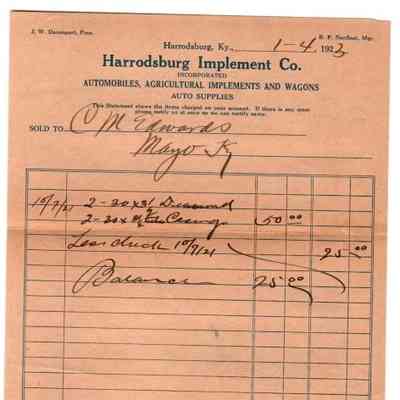 J. W. Davenport, Pres.
Harrodsburg, Ky., 1-4 1922
Harrodsburg Implement Co.
INCORPORATED
AUTOMOBILES, AGRICULTURAL IMPLEMENTS AND WAGONS
AUTO SUPPLIES
This Statement shows the items charged on your account. If there is any error please notify us at once so we can rectify same.
SOLD TO C M Edwards
Mayo Ky
10/7/21 2-30x3½ Diamond
2-30x3½ 50 00
Less check 10/7/21 25 00
Balance 25 00